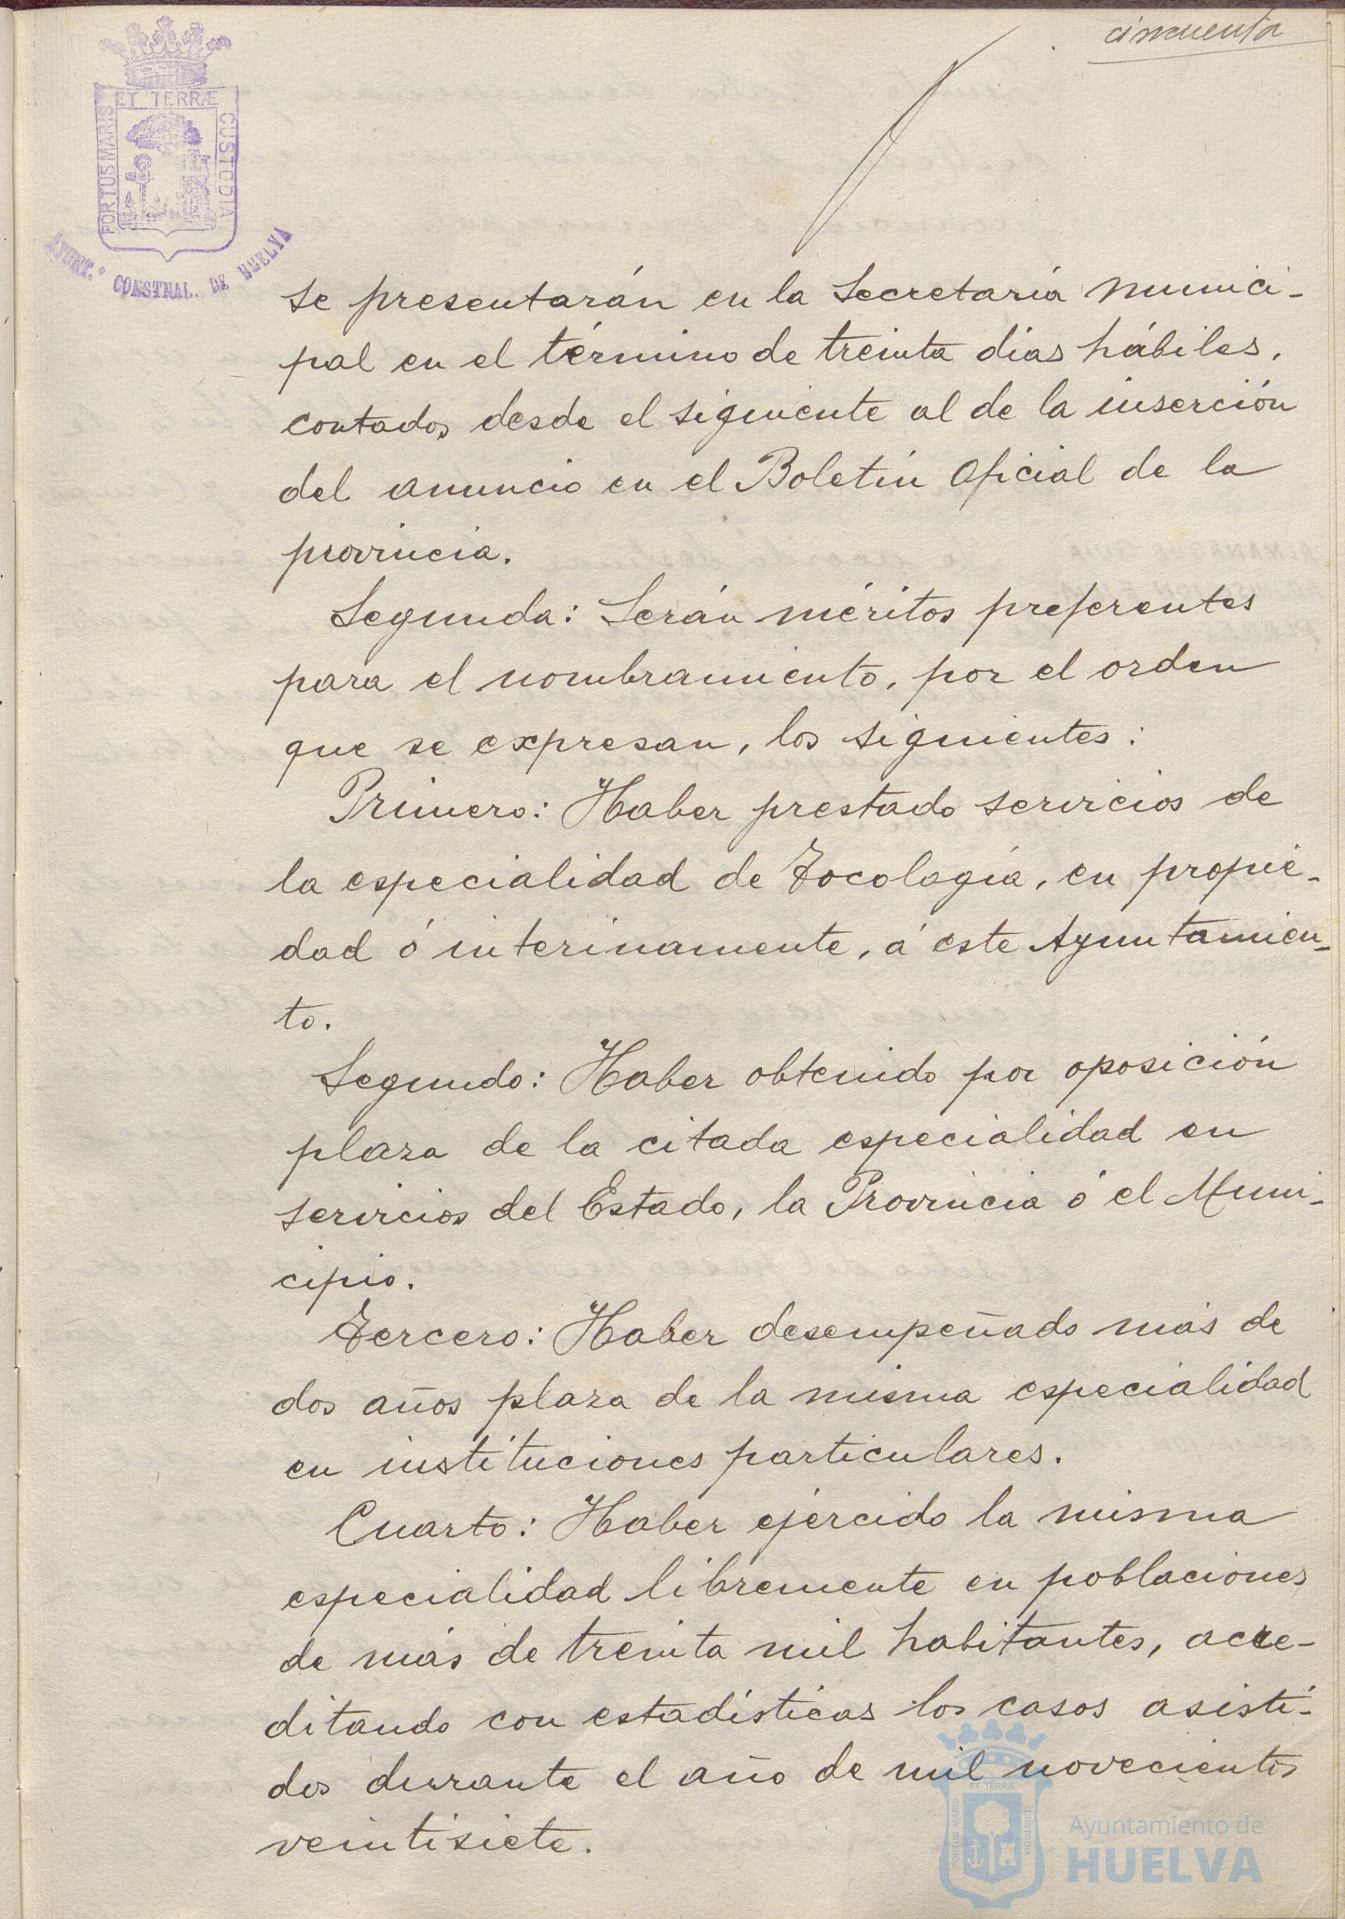 cincuenta
PORTUS MARIS ET TERRÆ CUSTODIA
AYUNT.º CONSTNAL. DE HUELVA
se presentarán en la Secretaría munici-
pal en el término de treinta días hábiles,
contados desde el siguiente al de la inserción
del anuncio en el Boletín Oficial de la
provincia.
Segunda: Serán méritos preferentes
para el nombramiento, por el orden
que se expresan, los siguientes:
Primero: Haber prestado servicios de
la especialidad de Tocología, en propie-
dad ó interinamente, á este Ayuntamien-
to.
Segundo: Haber obtenido por oposición
plaza de la citada especialidad en
servicios del Estado, la Provincia ó el Muni-
cipio.
Tercero: Haber desempeñado más de
dos años plaza de la misma especialidad
en instituciones particulares.
Cuarto: Haber ejercido la misma
especialidad libremente en poblaciones
de más de treinta mil habitantes, acre-
ditando con estadísticas los casos asisti-
dos durante el año de mil novecientos
veintisiete.
Ayuntamiento de
HUELVA